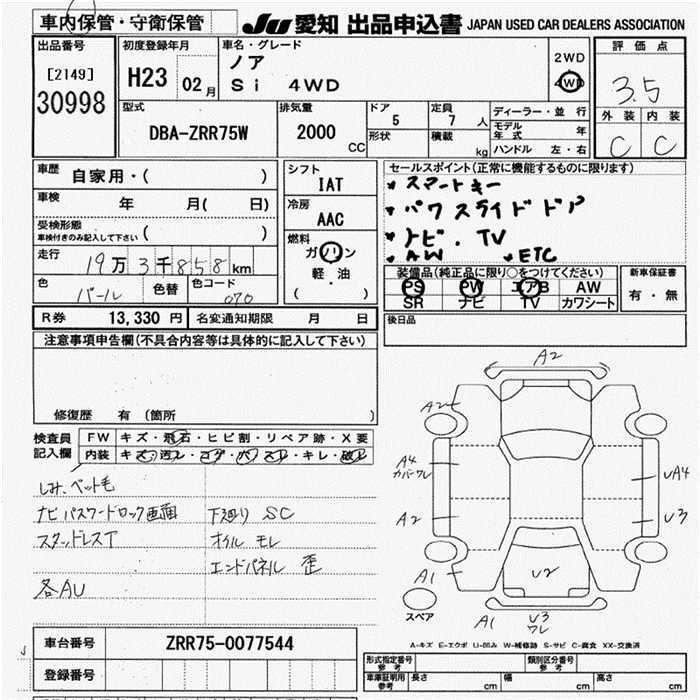 車内保管・守衛保管
JU 愛知 出品申込書 JAPAN USED CAR DEALERS ASSOCIATION
出品番号
[2149]
30998
初度登録年月
H23 02月
車名・グレード
ノア
Si 4WD
2WD
4WD
評価点
3.5
外装 内装
C C
型式
DBA-ZRR75W
排気量
2000 CC
ドア
5
形状
定員
7 人
積載
kg
ディーラー・並行
モデル年式 年
ハンドル 左・右
車歴
自家用・( )
車検 年 月( 日)
受検形態
車検付きのみ記入して下さい ( )
走行
19万3千858 km
色
パール
色替
色コード
070
シフト
IAT
冷房
AAC
燃料
ガソリン
軽・油
( )
セールスポイント(正常に機能するものに限ります)
スマートキー
パワスライドドア
ナビ・TV
AW ETC
装備品(純正品に限り○をつけてください)
PS PW エアB AW
SR ナビ TV カワシート
新車保証書
有・無
後日品
R券 13,330 円
名変通知期限 月 日
注意事項申告欄(不具合内容等は具体的に記入して下さい)
修復歴 有 (箇所 )
検査員記入欄
FW キズ・飛石・ヒビ割・リペア跡・X要
内装 キズ・汚レ・コゲ・穴・スレ・キレ・破レ
しみ、ペット毛
ナビパスワードロック画面
スタッドレスT
各AU
下廻り SC
オイルモレ
エンドパネル 歪
A2
A2
A4
カバーワレ
A2
A1
UA4
U3
U2
A1
U3
ワレ
スペア
A-キズ E-エクボ U-凹み W-補修跡 S-サビ C-腐食 XX-交換済
車台番号 ZRR75-0077544
登録番号
形式指定番号 参考
類別区分番号 参考
車庫証明用 参考
長さ cm
幅 cm
高さ cm